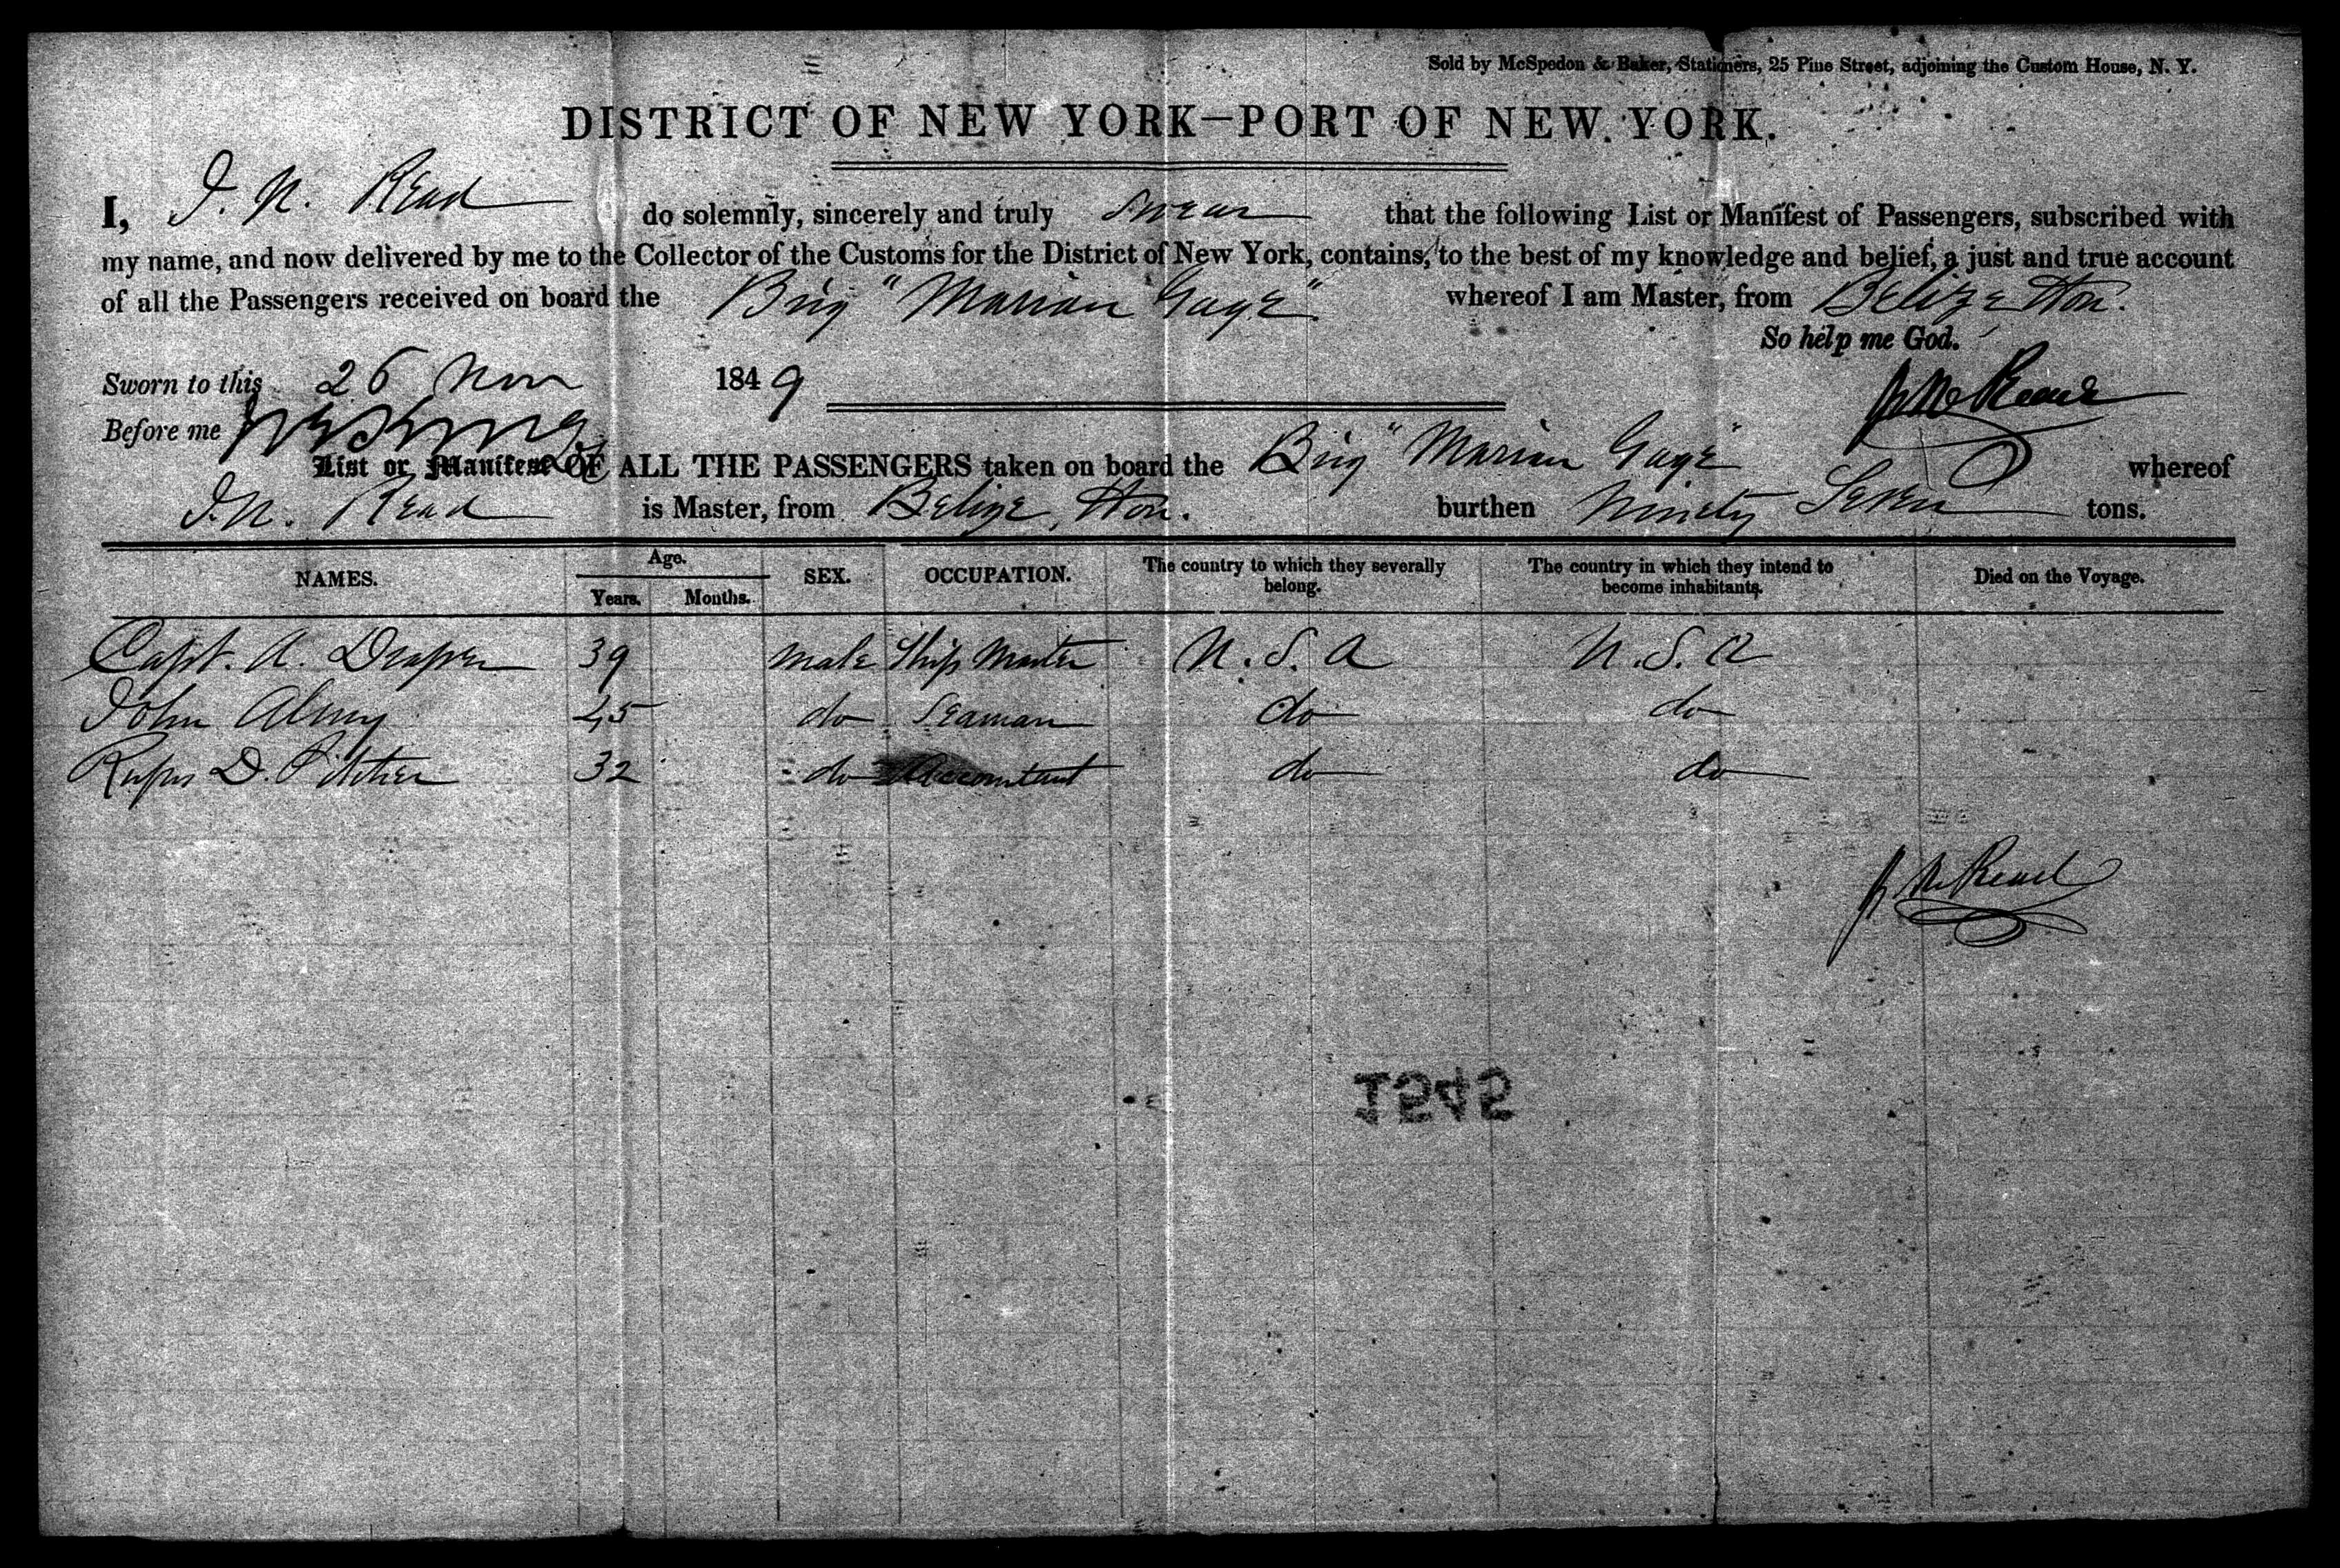 Sold by McSpedon & Baker, Stationers, 25 Pine Street, adjoining the Custom House, N. Y.
DISTRICT OF NEW YORK—PORT OF NEW YORK.
I, J. N. Read do solemnly, sincerely and truly swear that the following List or Manifest of Passengers, subscribed with
my name, and now delivered by me to the Collector of the Customs for the District of New York, contains, to the best of my knowledge and belief, a just and true account
of all the Passengers received on board the Brig "Marian Gage" whereof I am Master, from Belize Hon.
So help me God.
Sworn to this 26 Nov 1849
J N Read
Before me
List or Manifest OF ALL THE PASSENGERS taken on board the Brig "Marian Gage" whereof
J. N. Read is Master, from Belize, Hon. burthen Ninety Seven tons.
NAMES. Age. Years. Months. SEX. OCCUPATION. The country to which they severally belong. The country in which they intend to become inhabitants. Died on the Voyage.
Capt. A. Draper 39 male Ship Master U. S. A U. S. A
John Almy 45 do Seaman do do
Rufus D. 32 do Accountant do do
J N Read